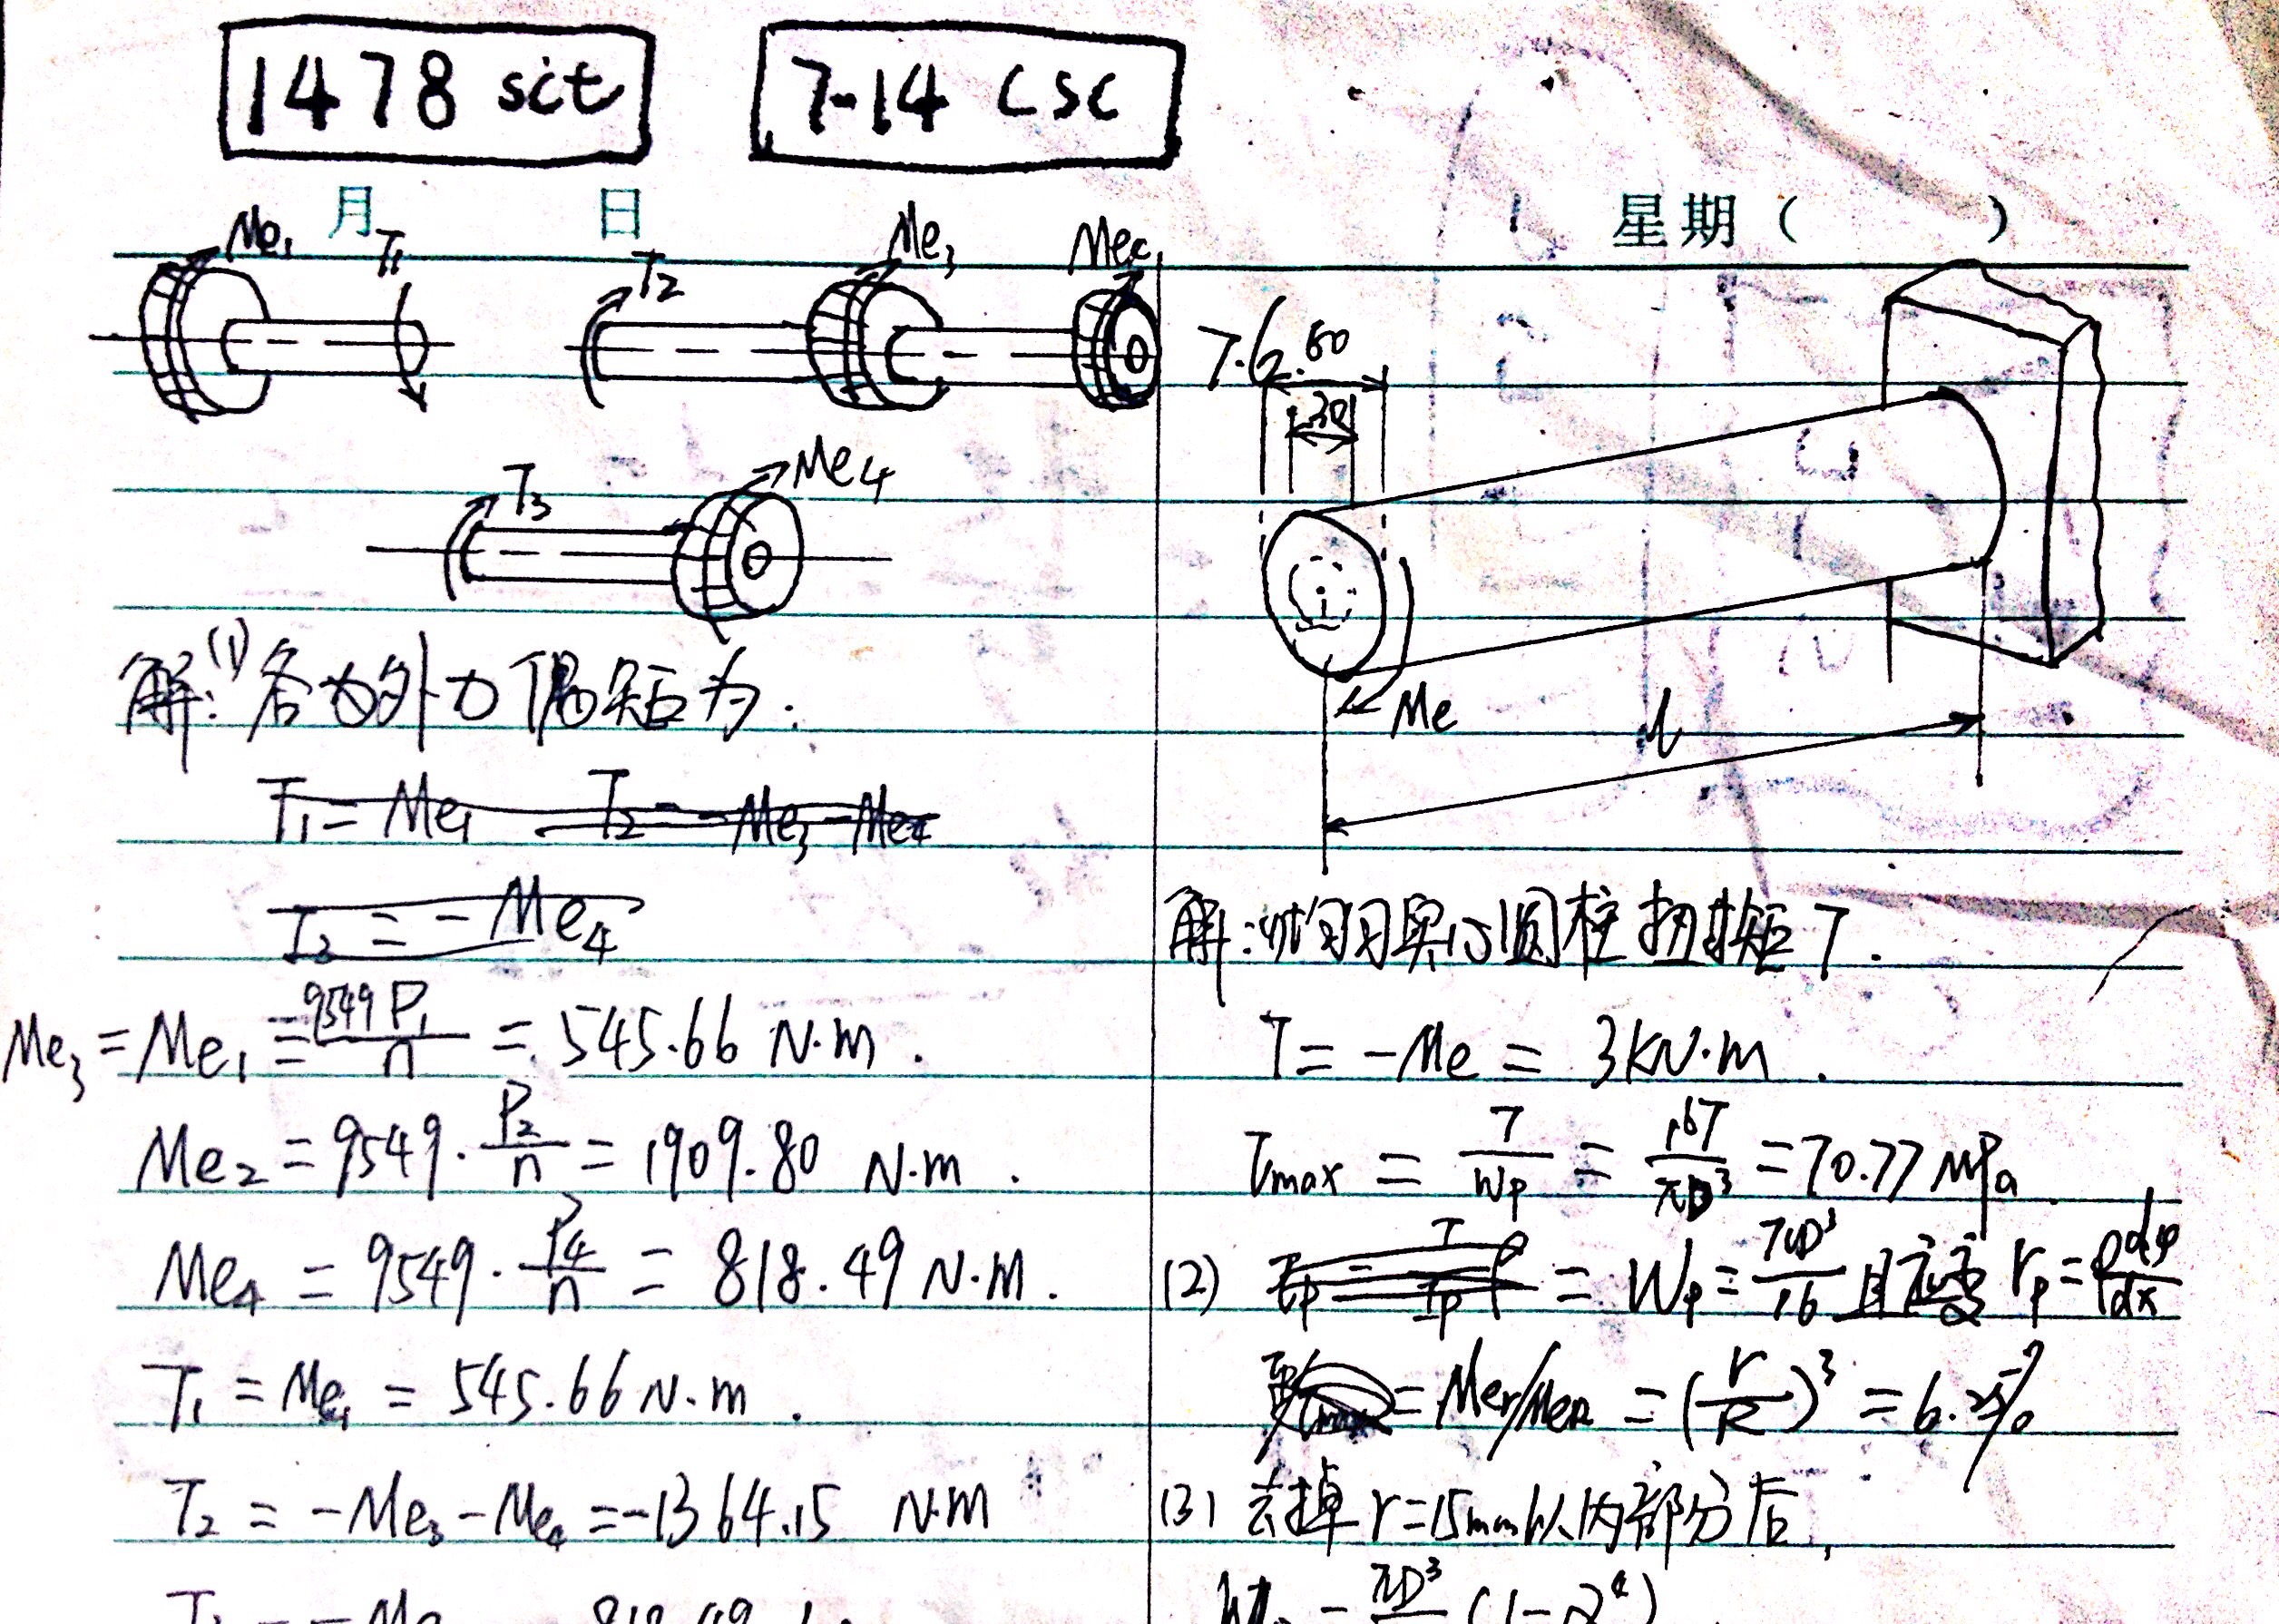 1478 sct
7-14 csc
月 日 星期（ ）
Me₁ T₁ T₂ Me₃ Me₄
T₃ Me₄
解：(1) 各力外力偶矩为：
T₁ = Me₁ T₂ = -Me₃ - Me₄
T₃ = -Me₄
Me₃ = Me₁ = 9549 P₁/n = 545.66 N·m .
Me₂ = 9549 · P₂/n = 1909.80 N·m .
Me₄ = 9549 · P₄/n = 818.49 N·m .
T₁ = Me₁ = 545.66 N·m .
T₂ = -Me₃ - Me₄ = -1364.15 N·m
7.6. 60
30
Me
l
解： 实心圆柱扭矩 T .
T = -Me = 3kN·m .
τmax = T/Wp = 16T/πD³ = 70.77 MPa .
(2) τρ = T/Ip ρ = Wp = πD³/16 且 rρ = ρdφ/dx
= Mer/MeR = (r/R)³ = 6.25%
(3) 去掉 r=15mm以内部分后，
πD³ (1-α⁴)